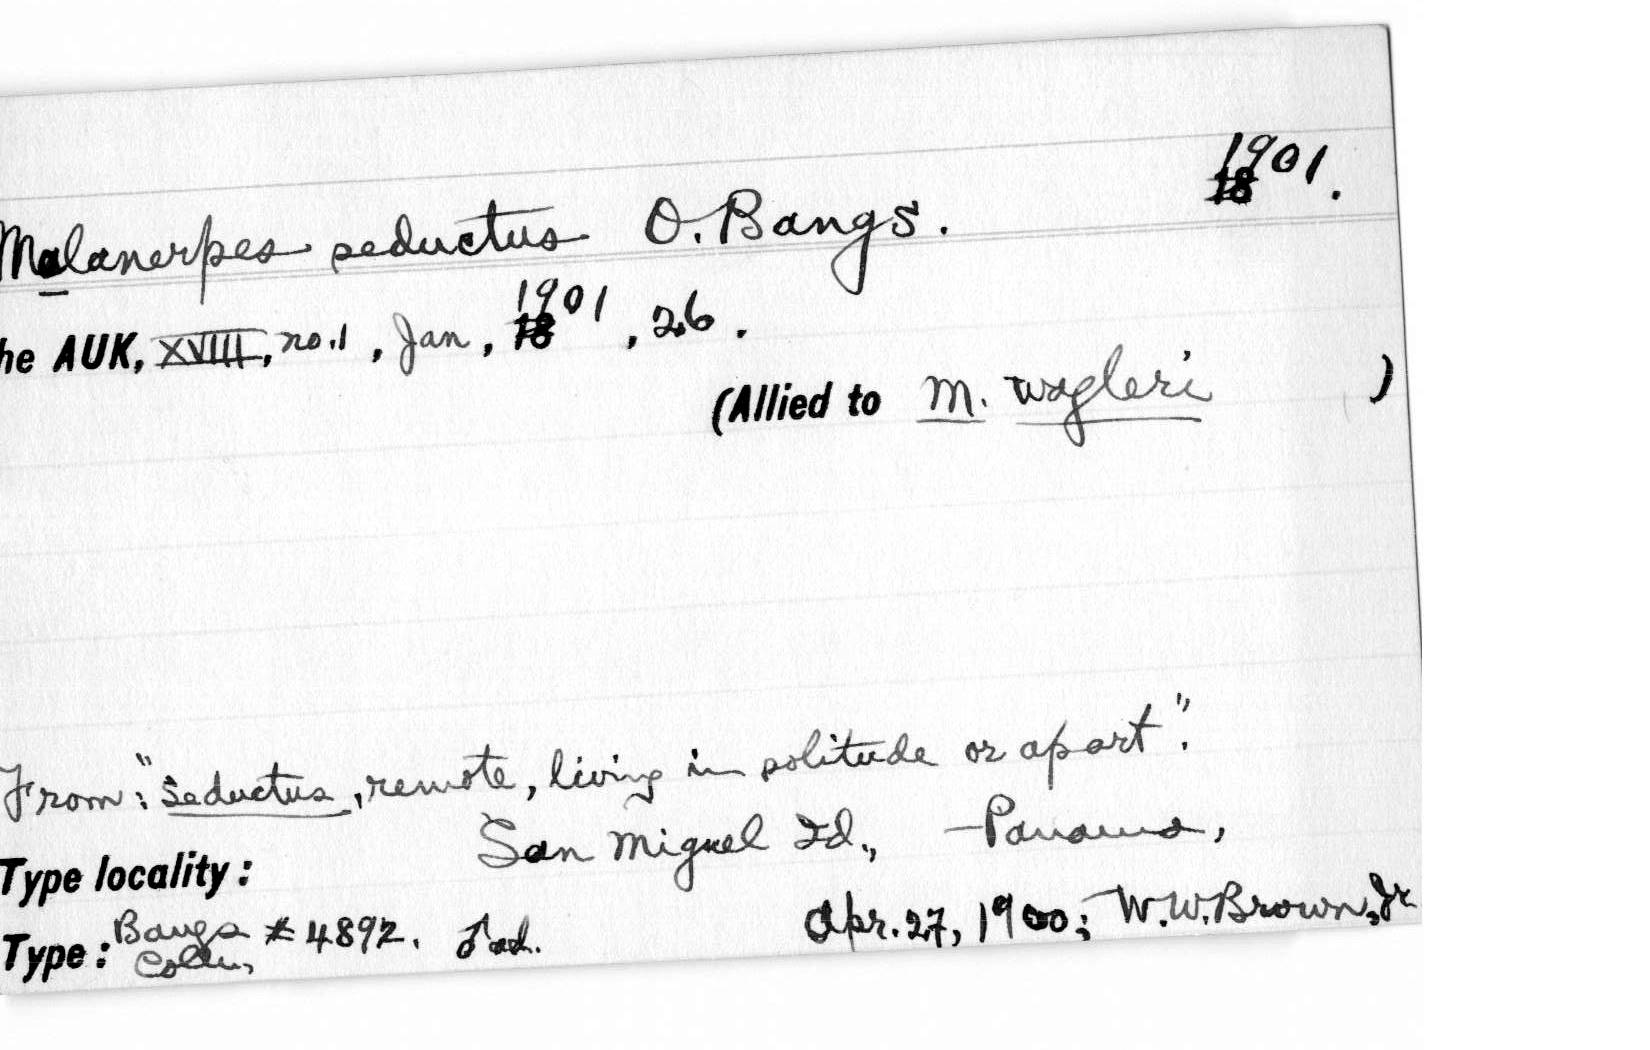 1901.
18
Malanerpes seductus O. Bangs.
he AUK, XVIII, no.1, Jan, 1901, 26.
18
(Allied to M. wagleri )
From: "seductus, remote, living in solitude or apart".
Type locality: San Miguel Id., Panama,
Type: Bangs Colln, # 4892. ♂ad. Apr. 27, 1900; W.W. Brown, Jr